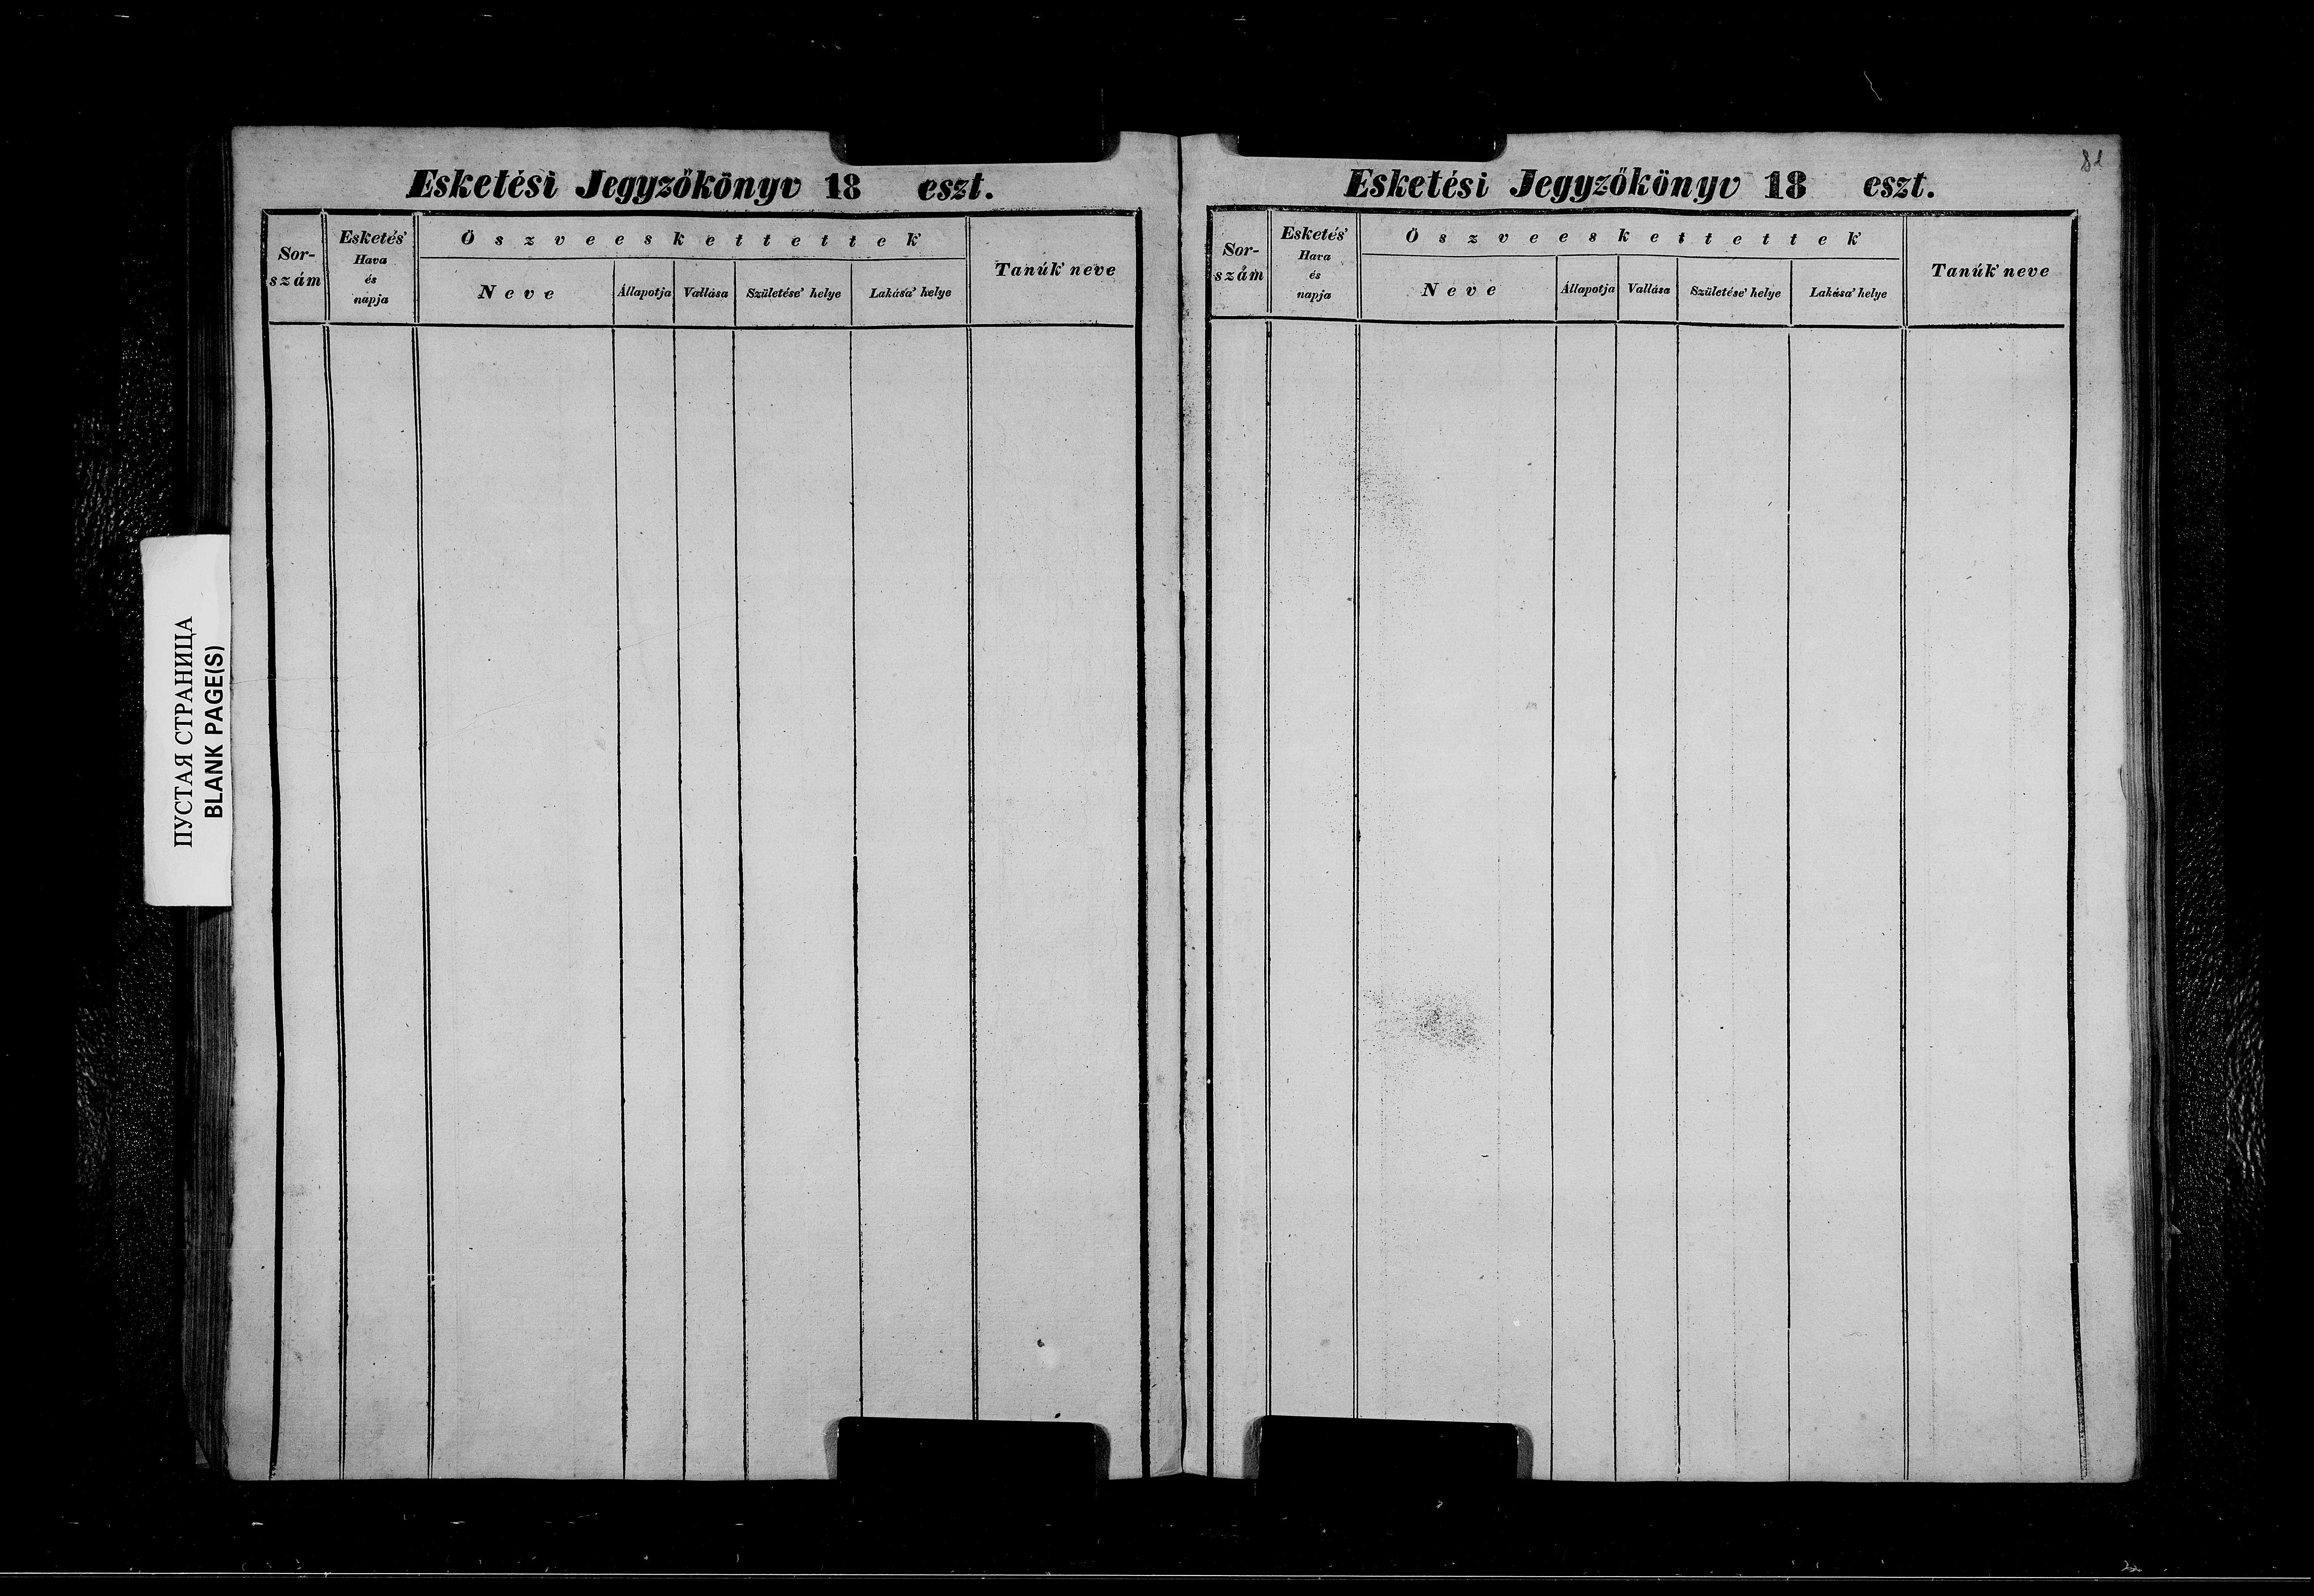 Esketési Jegyzőkönyv 18 eszt.
Sor-
szám
Esketés'
Hava
és
napja
Öszveeskettettek'
Neve
Állapotja
Vallása
Születése' helye
Lakása' helye
Tanúk' neve
ПУСТАЯ СТРАНИЦА
BLANK PAGE(S)
81
Esketési Jegyzőkönyv 18 eszt.
Sor-
szám
Esketés'
Hava
és
napja
Öszveeskettettek'
Neve
Állapotja
Vallása
Születése' helye
Lakása' helye
Tanúk' neve